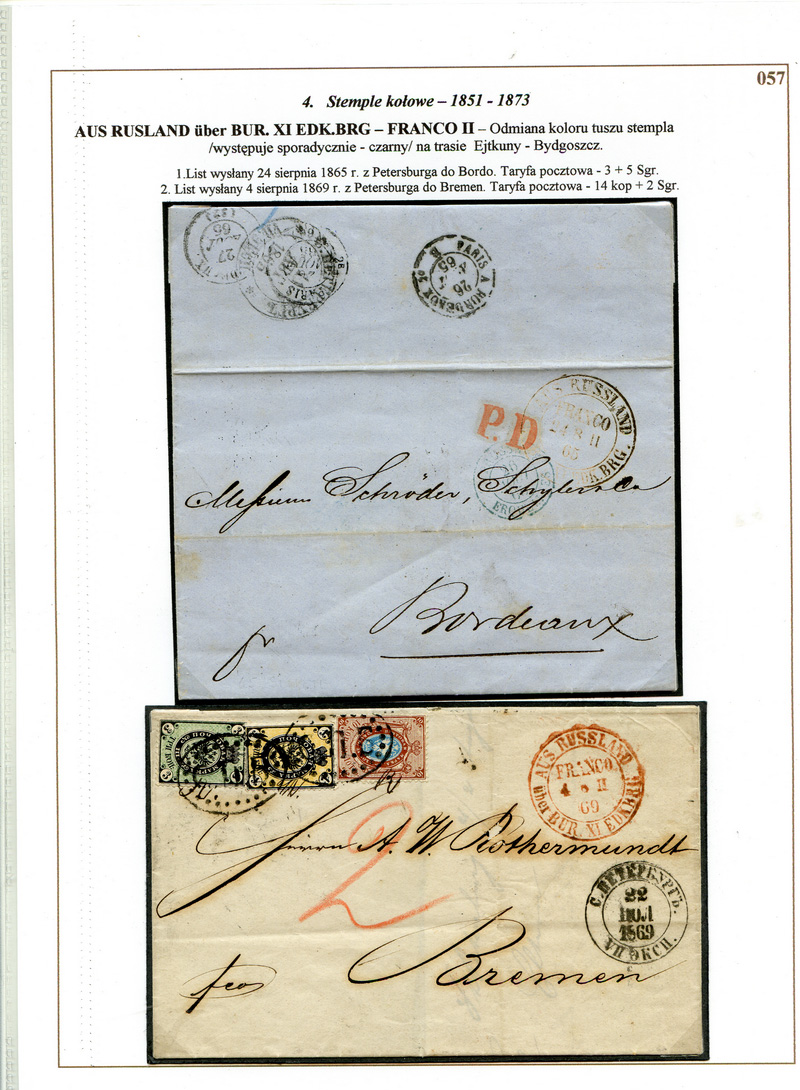 057
4. Stemple kołowe – 1851 - 1873
AUS RUSLAND über BUR. XI EDK.BRG – FRANCO II – Odmiana koloru tuszu stempla
/występuje sporadycznie - czarny/ na trasie Ejtkuny - Bydgoszcz.
1.List wysłany 24 sierpnia 1865 r. z Petersburga do Bordo. Taryfa pocztowa - 3 + 5 Sgr.
2. List wysłany 4 sierpnia 1869 r. z Petersburga do Bremen. Taryfa pocztowa - 14 kop + 2 Sgr.
27
65
PARIS
PARIS A BORDEAUX
26
65
AUS RUSSLAND
FRANCO
24 8 II
65
EDK.BRG.
P.D
Messieurs Schröder, Schyler & Co
Bordeaux
AUS RUSSLAND
FRANCO
4 8 II
69
über BUR. XI EDKBRG
2
Herrn A. W. Rothermundt
С.ПЕТЕРБУРГЪ.
22
ІЮЛ
1869
Bremen
fco